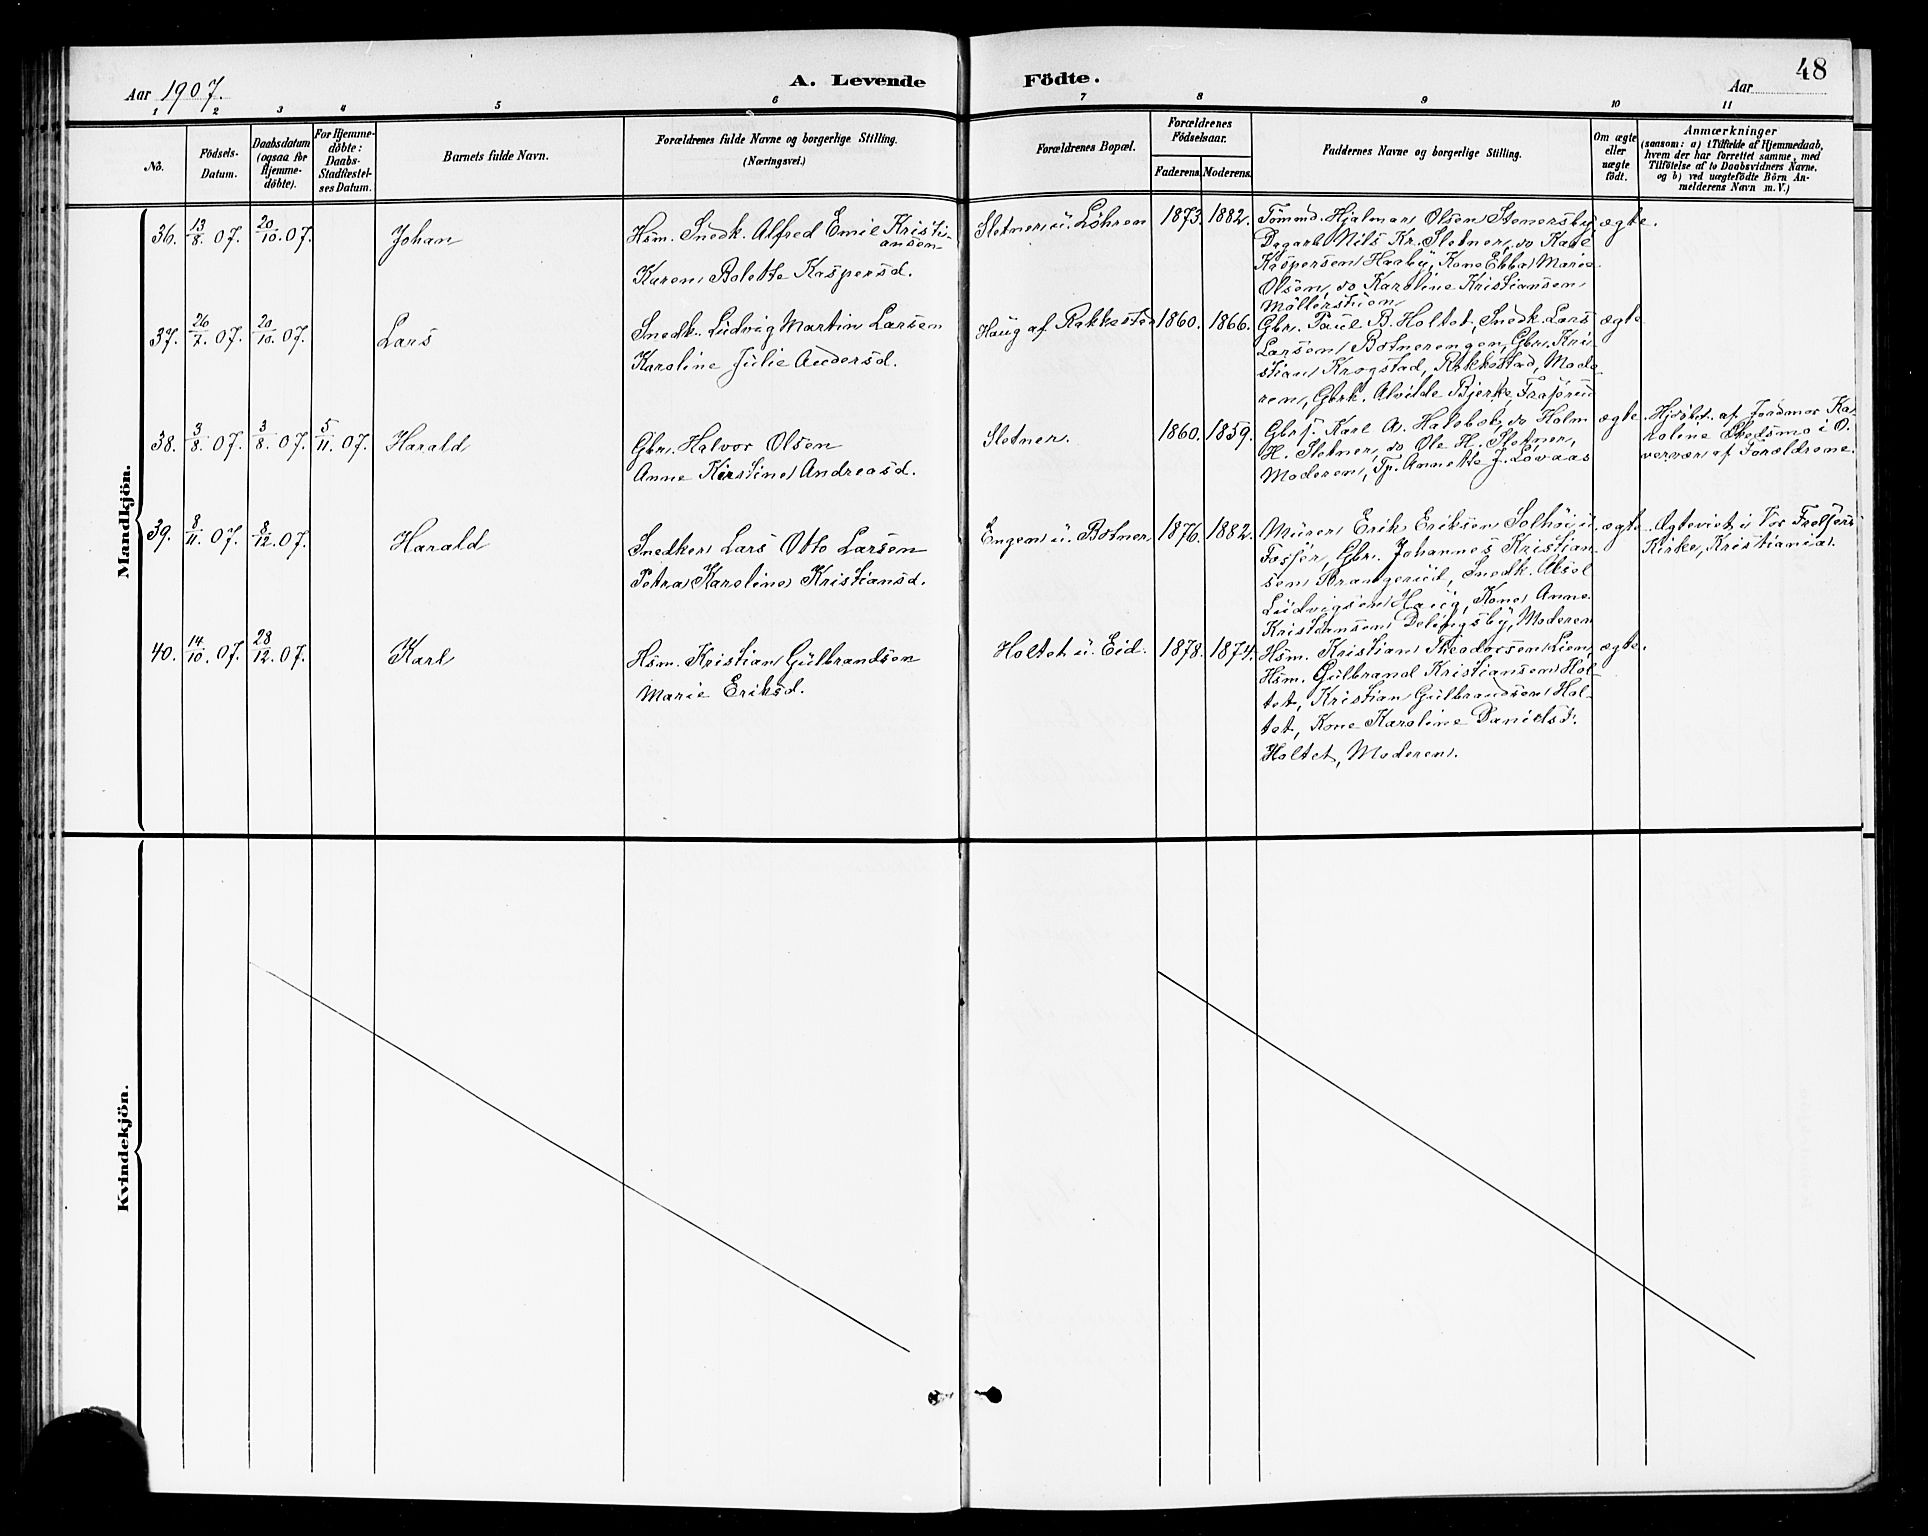 48
Aar 1907.
A. Levende Födte.
Aar
1 2 3 4 5 6 7 8 9 10 11
No.
Födsels-Datum.
Daabsdatum (ogsaa for Hjemme-döbte).
For Hjemme-döbte: Daabs-Stadfæstel-ses Datum.
Barnets fulde Navn.
Forældrenes fulde Navne og borgerlige Stilling.
(Næringsvei.)
Forældrenes Bopæl.
Forældrenes Födselsaar.
Faderens. Moderens.
Faddernes Navne og borgerlige Stilling.
Om ægte eller uægte födt.
Anmærkninger
(saasom: a) i Tilfælde af Hjemmedaab,
hvem der har forrettet samme, med
Tilföielse af to Daabsvidners Navne.
og b) ved uægtefödte Börn An-
melderens Navn m. V.)
Mandkjön.
36. 13/8 07. 20/10 07. Johan
Hsm. Snedk. Alfred Emil Kristi-
ansen
Karen Bolette Kaspersd.
Sletner u. Löhren 1873. 1882.
Tömmd. Hjalmar Olsen Stenersby,
Dagarb. Nils Kr. Sletner, do Karl
Kaspersen Haaby, Kone Ebba Marie
Olsen, do Karoline Kristiansen
Möllerstuen
ægte.
37. 26/7 07. 20/10 07. Lars
Snedk. Ludvig Martin Larsen
Karoline Julie Andersd.
Haug af Rakkestad 1860. 1866.
Gbr. Paul B. Holtet, Snedk. Lars
Larsen Botnerengen, Gbr. Kri-
stian Krogstad, Rakkestad, Mode-
ren, Gbrk. Alvilde Bjerke, Trasörud
ægte
38. 3/8 07. 3/8 07. 5/11 07. Harald
Gbr. Halvor Olsen
Anne Kirstine Andreasd.
Sletner. 1860. 1859.
Gbrs. Karl A. Halsbok, do Holm
H. Sletner, do Ole H. Sletner,
Moderen, Tp. Annette J. Lövaas
ægte
Hjdöbt. af Jordmor Ka-
roline Skedsmo i O-
vervær af Forældrene.
39. 8/11 07. 8/12 07. Harald
Snedker Lars Otto Larsen
Petra Karoline Kristiansd.
Engen u. Botner 1876. 1882.
Murer Erik Eriksen Solhöi u.
Fosser, Gbr. Johannes Kristian-
sen Strangerud, Snedk. Aksel
Ludvigsen Haug, Kone Anne
Kristiansen Delingsby, Moderen
ægte
Ægteviet i Vor Frelsers
Kirke, Kristiania.
40. 14/10 07. 28/12 07. Karl
Hsm. Kristian Gulbrandsen
Marie Eriksd.
Holtet u. Eid. 1878. 1874.
Hsm. Kristian Theodorsen Lien,
Hsm. Gulbrand Kristiansen Hol-
tet, Kristian Gulbrandsen Hol-
tet, Kone Karoline Danielsd.
Holtet, Moderen.
ægte.
Kvindekjön.